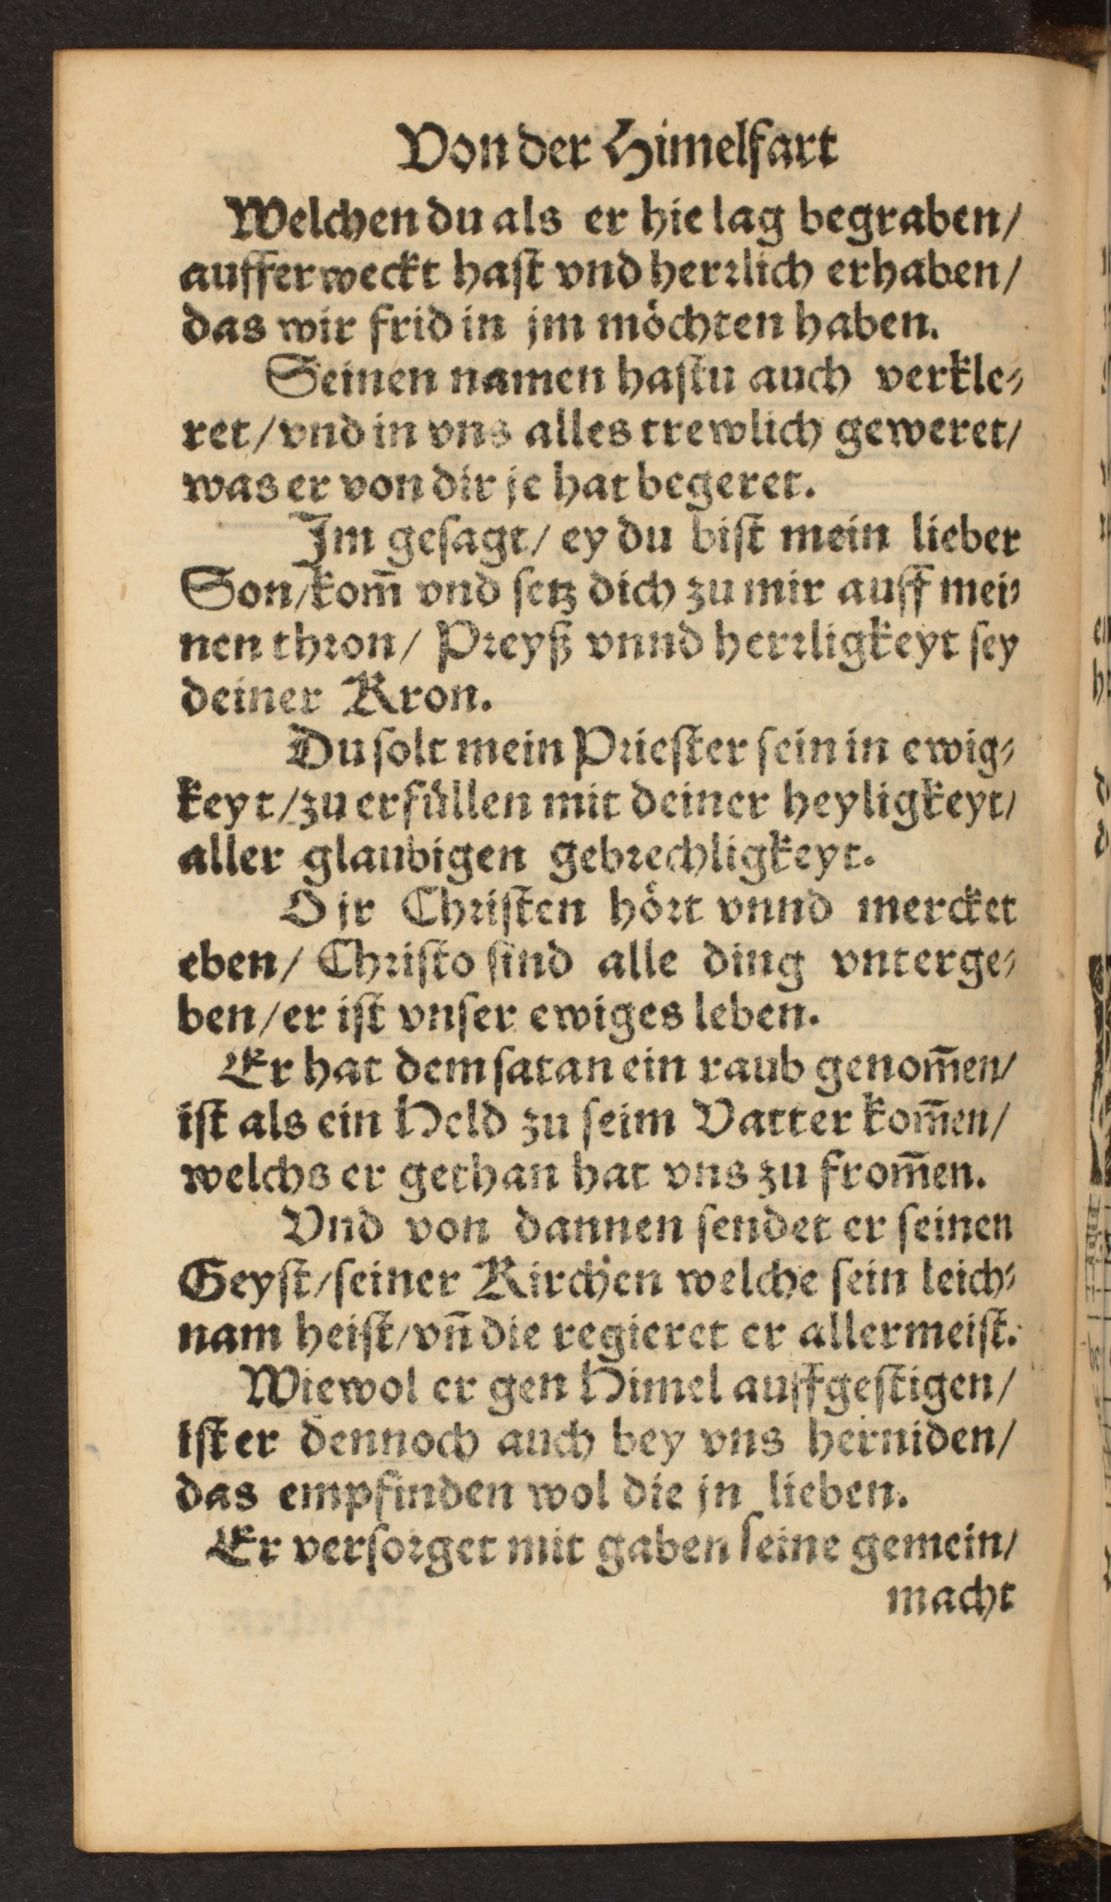 Von der Himelfart
Welchen du als er hie lag begraben/
aufferweckt hast vnd herrlich erhaben/
das wir frid in jm möchten haben.
Seinen namen hastu auch verkle-
ret/vnd in vns alles trewlich geweret/
was er von dir je hat begeret.
Jm gesagt/ ey du bist mein lieber
Son/kom̄ vnd setz dich zu mir auff mei-
nen thron/ Preyß vnnd herrligkeyt sey
deiner Kron.
Du solt mein Priester sein in ewig-
keyt/zu erfüllen mit deiner heyligkeyt/
aller glaubigen gebrechligkeyt.
O jr Christen hört vnnd mercket
eben/ Christo sind alle ding vnterge-
ben/er ist vnser ewiges leben.
Er hat dem satan ein raub genom̄en/
ist als ein Held zu seim Vatter kom̄en/
welchs er gethan hat vns zu from̄en.
Vnd von dannen sendet er seinen
Geyst/seiner Kirchen welche sein leich-
nam heist/vn̄ die regieret er allermeist.
Wiewol er gen Himel auffgestigen/
ist er dennoch auch bey vns herniden/
das empfinden wol die jn lieben.
Er versorget mit gaben seine gemein/
macht